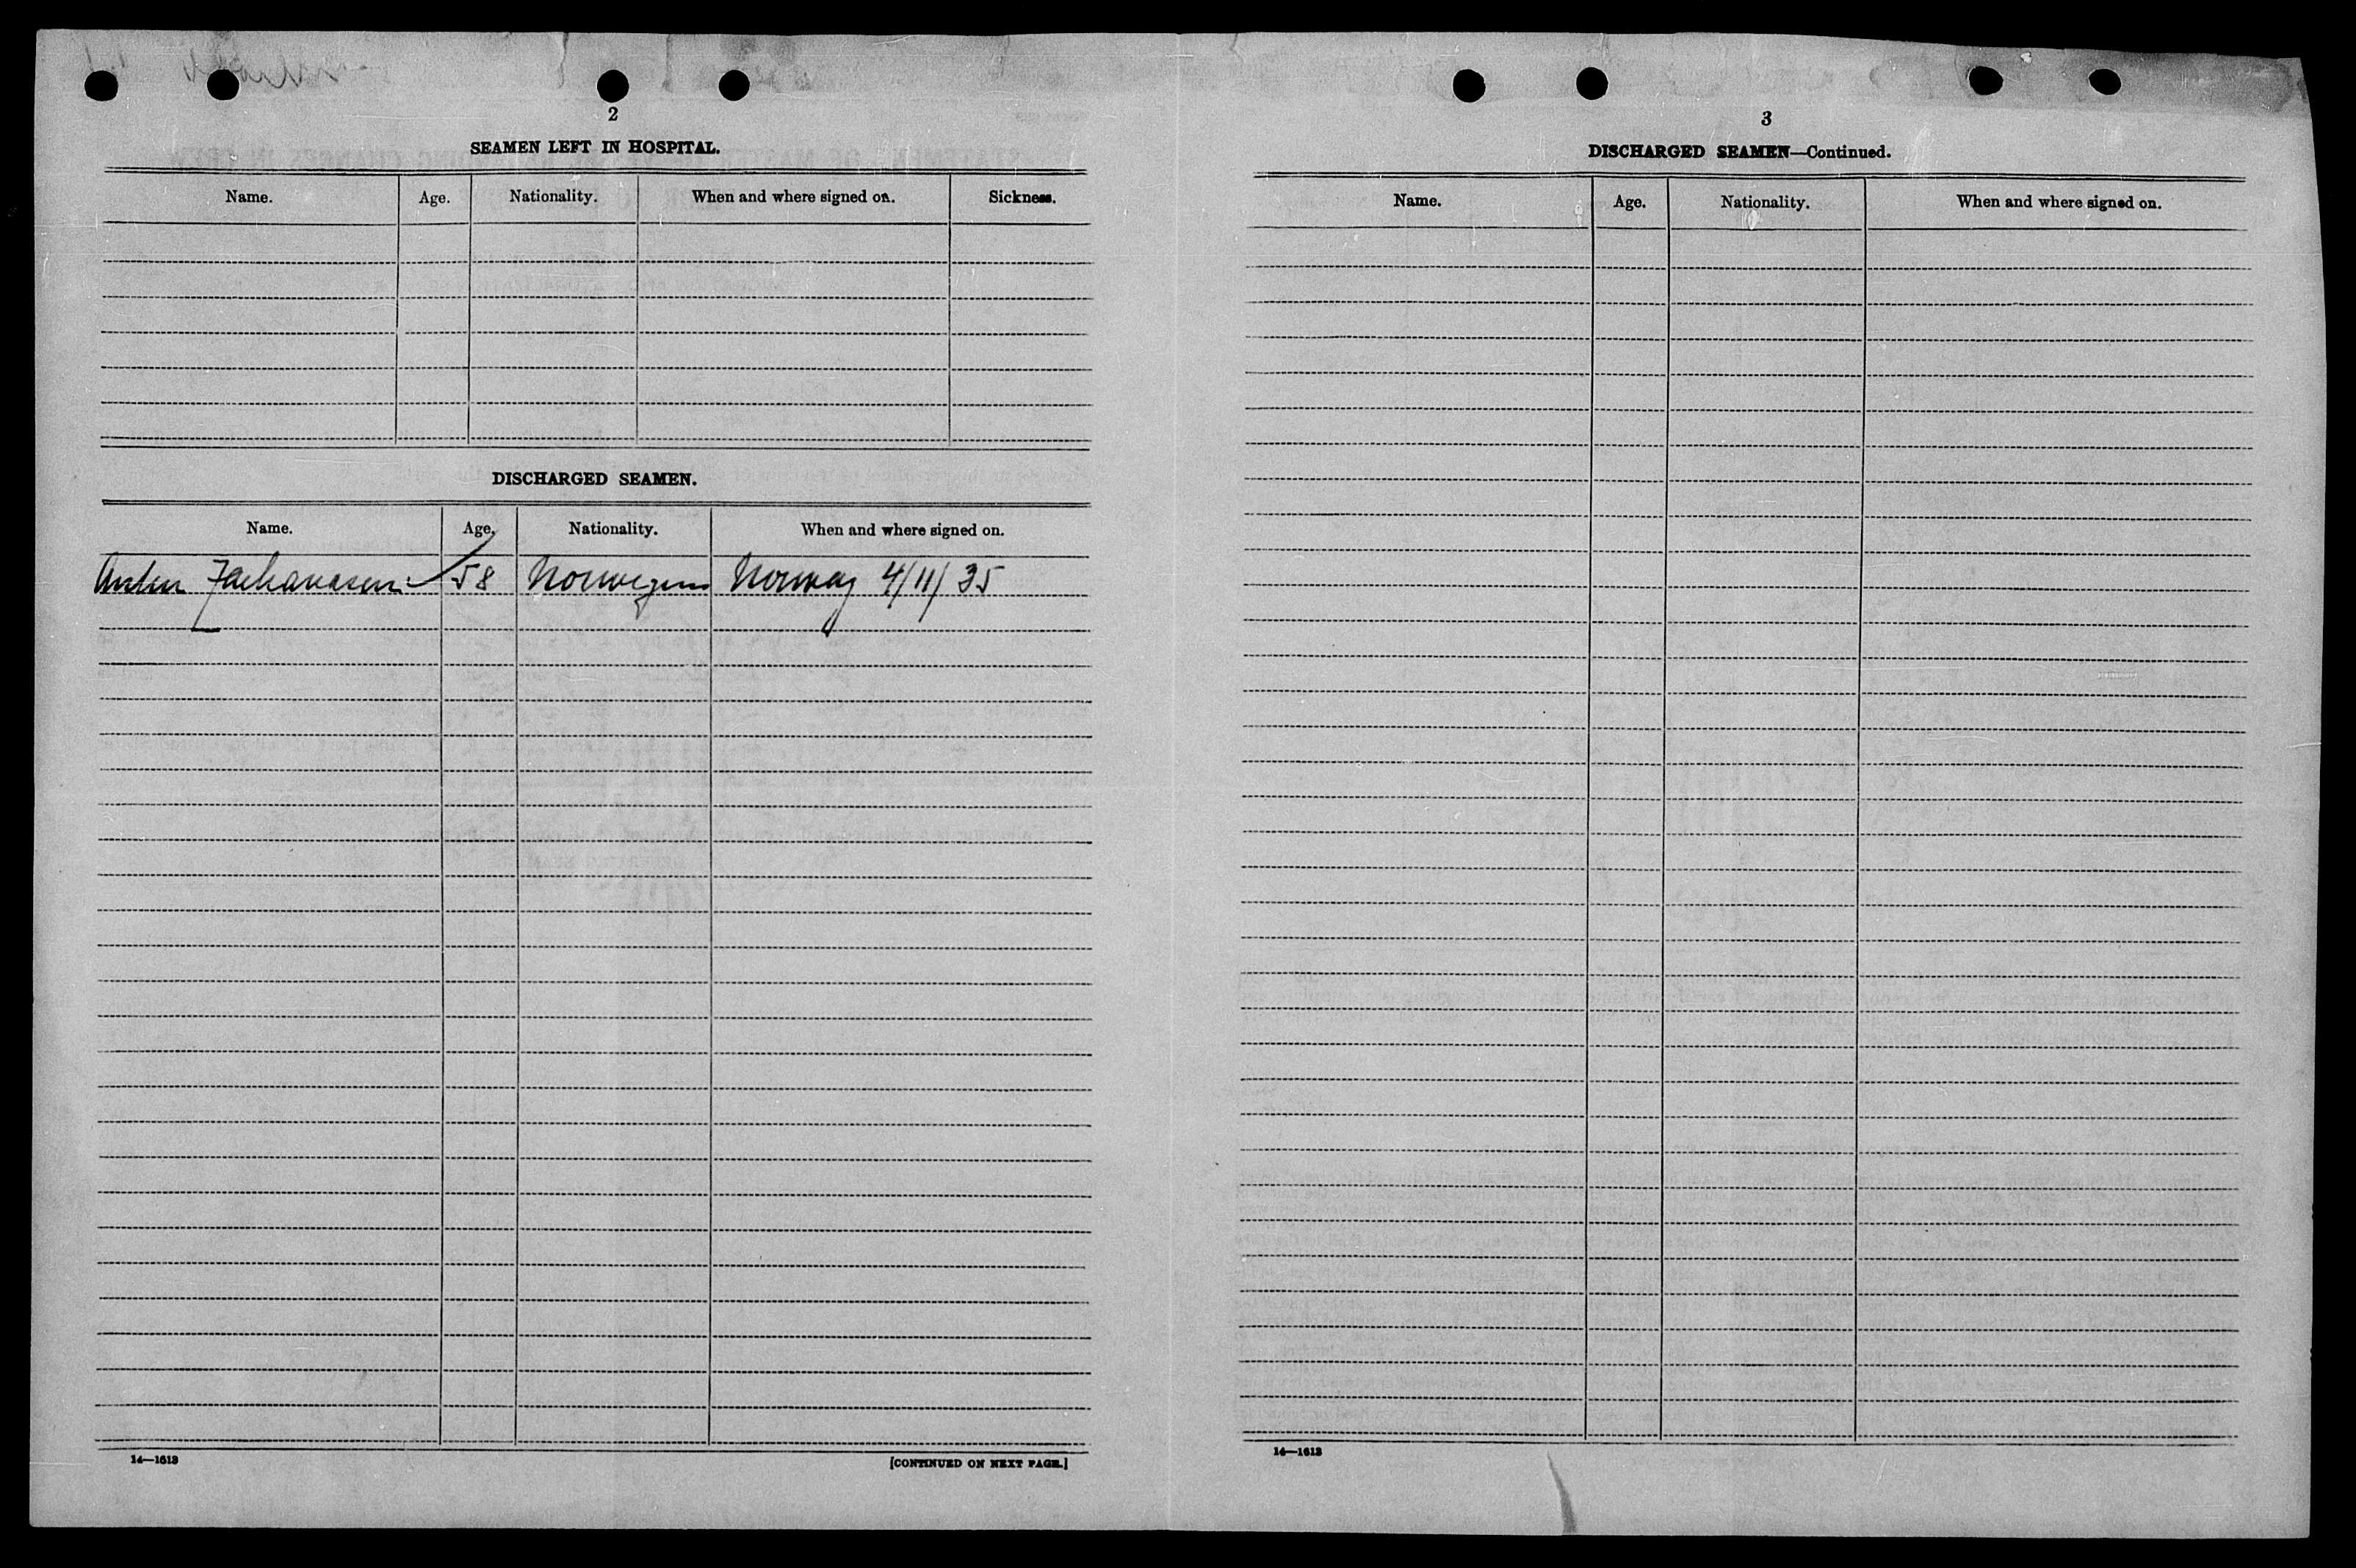 2
SEAMEN LEFT IN HOSPITAL.
Name. Age. Nationality. When and where signed on. Sickness.
DISCHARGED SEAMEN.
Name. Age. Nationality. When and where signed on.
58 Norwegian Norway 4/11/35
14—1613
[CONTINUED ON NEXT PAGE.]
3
DISCHARGED SEAMEN—Continued.
Name. Age. Nationality. When and where signed on.
14—1613